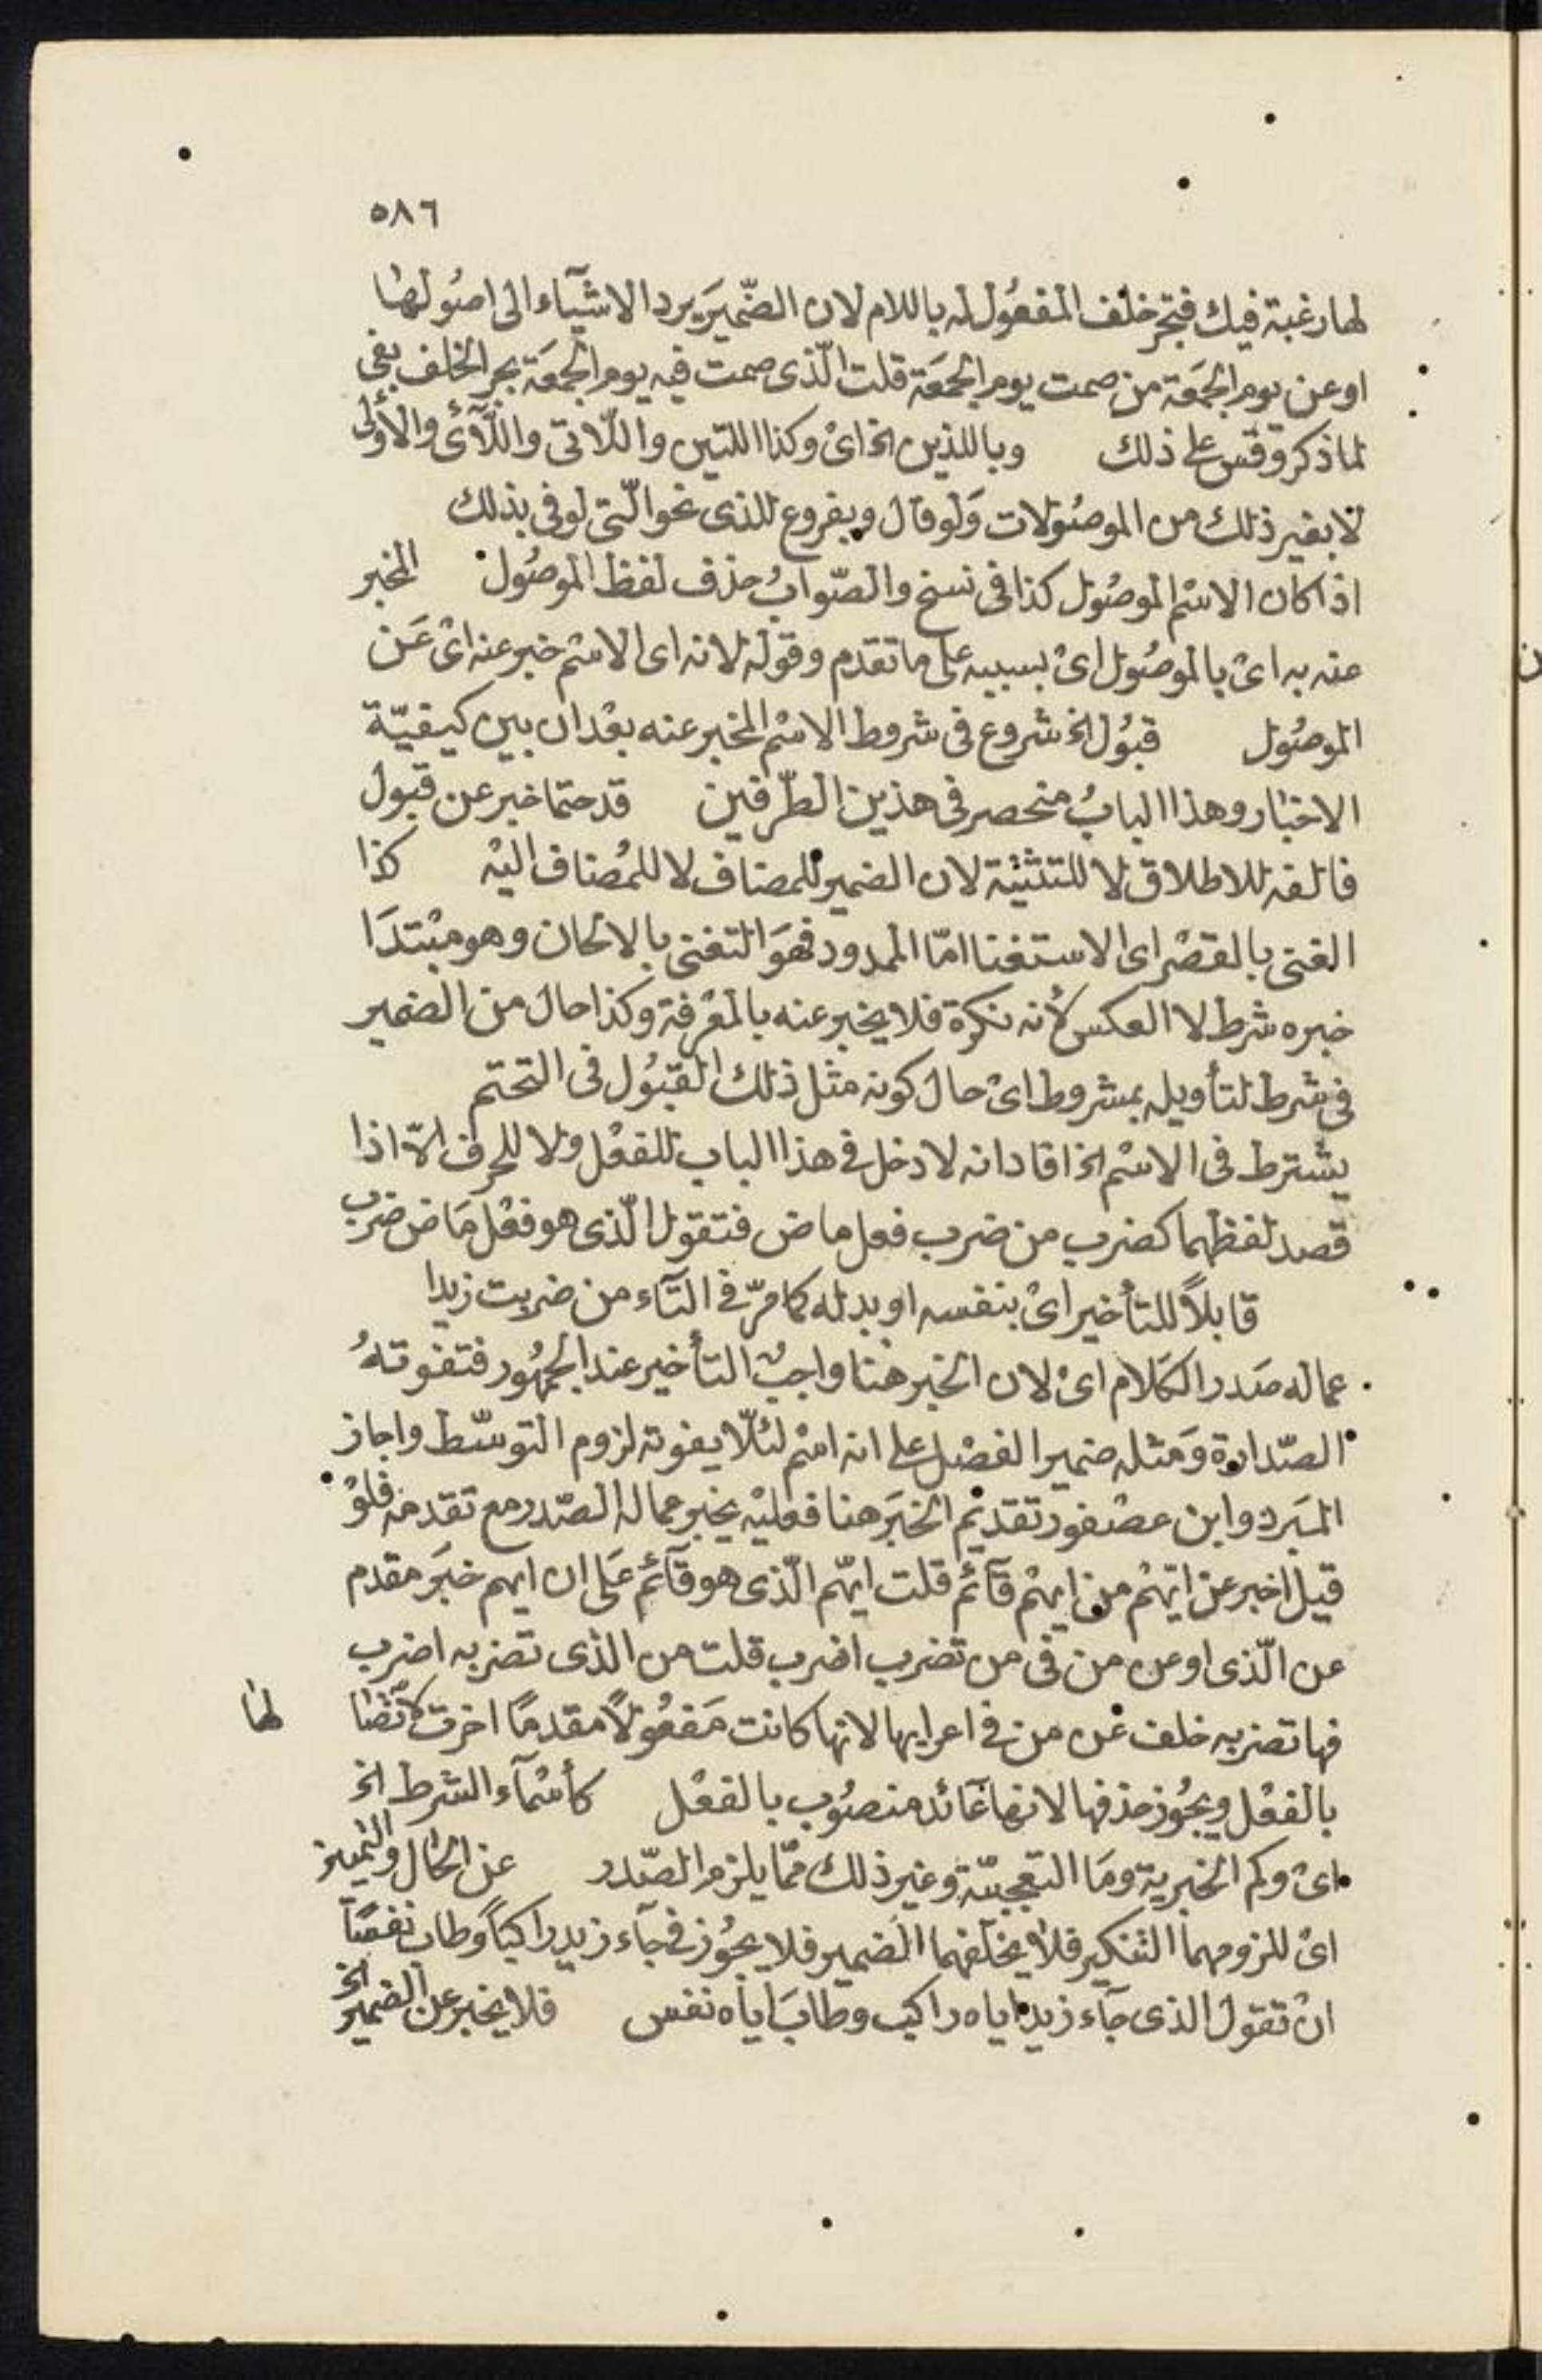 ٥٨٦
لها رغبة فيك فتجر خلف المفعول له باللام لان الضمير يرد الاشيآء الى اصولها
او عن يوم الجمعة من صمت يوم الجمعة قلت الّذى صمت فيه يوم الجمعة بجر الخلف بفى
لما ذكر وقس على ذلك وباللذين الخ اى وكذا اللتين واللّاتى واللّآئى والأولى
لا بغير ذلك من الموصولات ولو قال وبفروع للذى نحو الّتى لوفى بذلك
اذا كان الاسم الموصول كذا فى نسخ والصّواب حذف لفظ الموصول المخبر
عنه به اى بالموصول اى بسببه على ما تقدم وقوله لانه اى الاسم خبر عنه اى عَن
الموصول قبول الخ شروع فى شروط الاسم المخبر عنه بعد ان بين كيفيّة
الاخبار وهذا الباب منحصر فى هذين الطّرفين قد حتما خبر عن قبول
فالفه للاطلاق لا للتثنية لان الضمير للمضاف لا للمضاف اليه كذا
الغنى بالقصر اى الاستغنا امّا الممدود فهوَ التغنى بالالحان وهو مبتدَا
خبره شرط لا العكس لأنه نكرة فلا يخبر عنه بالمعرفة وكذا حال من الضمير
فى شرط لتأويله بمشروط اى حال كونه مثل ذلك القبول فى التحتم
يشترط فى الاسم الخ افاد انه لا دخل فى هذا الباب للفعل ولا للحرف الّا اذا
قصد لفظهما كضرب من ضرب فعل ماض فتقول الّذى هو فعل ماض ضرب
قابلاً للتأخير اى بنفسه او بدله كما مرّ فى التآء من ضربت زيدا
عماله صدر الكلام اى لان الخبر هنا واجب التأخير عند الجمهور فتفوته
الصّدارة ومثله ضمير الفصل على انه اسم لئلّا يفوته لزوم التوسّط واجاز
المبرد وابن عصفور تقديم الخبَر هنا فعليه يخبر عماله الصّدر مع تقدمه فلو
قيل اخبر عن ايّهم من ايهم قآئم قلت ايّهم الّذى هو قآئم على ان ايهم خبر مقدم
عن الّذى او عن من فى من تضرب اضرب قلت من الذى تضربه اضرب
فها تضربه خلف عن من فى اعرابها لانها كانت مفعولاً مقدمًا اخرت لها
بالفعل ويجوز حذفها لانها عآئد منصوب بالفعل كأسمآء الشرط الخ
اى وكم الخبرية وما التعجبيّة وغير ذلك ممّا يلزم الصّدر عن الحال والتمييز
اى للزومهما التنكير فلا يخلفهما الضمير فلا يجوز فى جآء زيد راكباً وطاب نفسًا
ان تقول الذى جآء زيد اياه راكب وطابَ اياه نفس فلا يخبر عن الضمير الخ